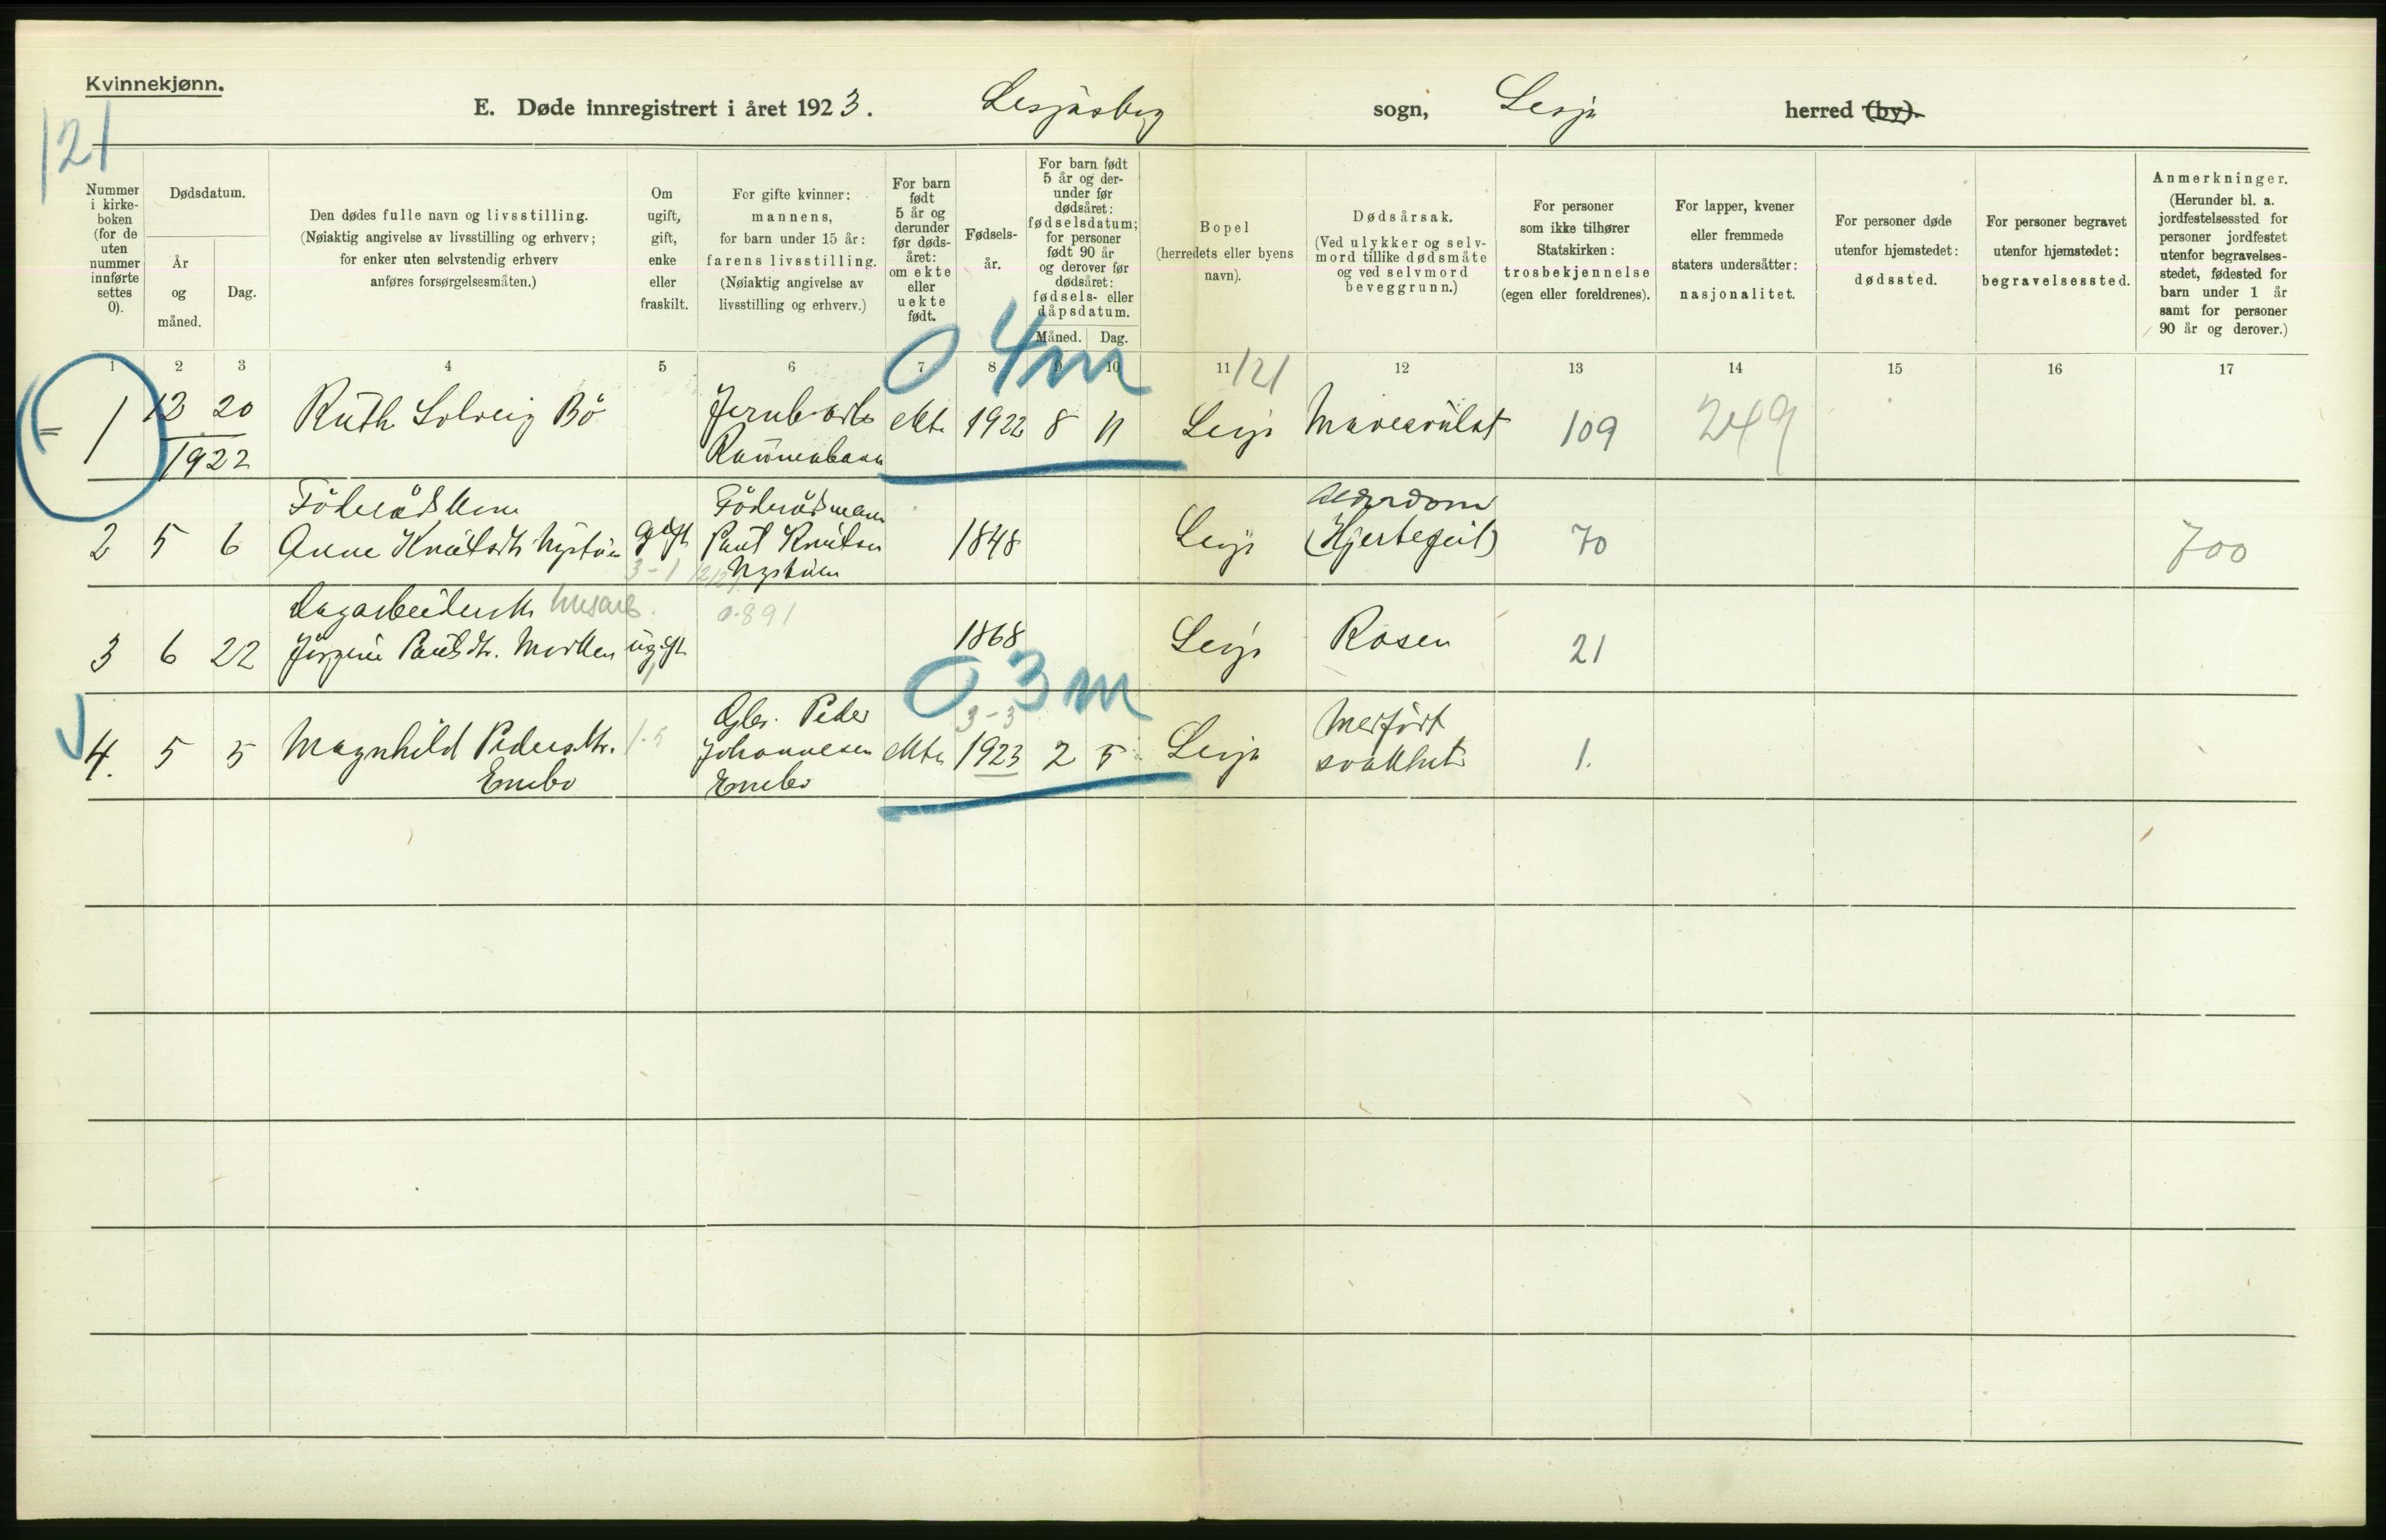 Kvinnekjønn.
E. Døde innregistrert i året 1923. Lesjaskog sogn, Lesja herred (by).
121
Nummer i kirke-boken (for de uten nummer innførte settes 0).
Dødsdatum.
År og måned.
Dag.
Den dødes fulle navn og livsstilling.
(Nøiaktig angivelse av livsstilling og erhverv;
for enker uten selvstendig erhverv
anføres forsørgelsesmåten.)
Om ugift, gift, enke eller fraskilt.
For gifte kvinner:
mannens,
for barn under 15 år:
farens livsstilling.
(Nøiaktig angivelse av
livsstilling og erhverv.)
For barn født 5 år og derunder før døds-året: om ekte eller uekte født.
Fødsels-år.
For barn født 5 år og der-under før dødsåret: fødselsdatum; for personer født 90 år og derover før dødsåret: fødsels- eller dåpsdatum.
Måned. Dag.
Bopel
(herredets eller byens
navn).
Dødsårsak.
(Ved ulykker og selv-
mord tillike dødsmåte
og ved selvmord
beveggrunn.)
For personer
som ikke tilhører
Statskirken:
trosbekjennelse
(egen eller foreldrenes).
For lapper, kvener
eller fremmede
staters undersåtter:
nasjonalitet.
For personer døde
utenfor hjemstedet:
dødssted.
For personer begravet
utenfor hjemstedet:
begravelsessted.
Anmerkninger.
(Herunder bl. a.
jordfestelsessted for
personer jordfestet
utenfor begravelses-
stedet, fødested for
barn under 1 år
samt for personer
90 år og derover.)
1 2 3 4 5 6 7 8 9 10 11 12 13 14 15 16 17
0 4 m
121
1 12 20 Ruth Solveig Bö ekte 1922 8 11 Lesja 109 249
1922 Raumabanen
Föderådsmann Alderdom
2 5 6 Anne Knutsdtr Nystuen gift Paul Knutsen 1848 Lesja (Hjertefeil) 70 700
3-1 Nystuen
husarb. 0.891
3 6 22 Jörgine Paulsdtr. ugift 1868 Lesja Rosen 21
0 3 m
Gbr. Peder 3-3 Medfört
4. 5 5 Magnhild Pedersdtr. Johannesen ekte 1923 2 5 Lesja svakhet 1.
Enebo Enebo